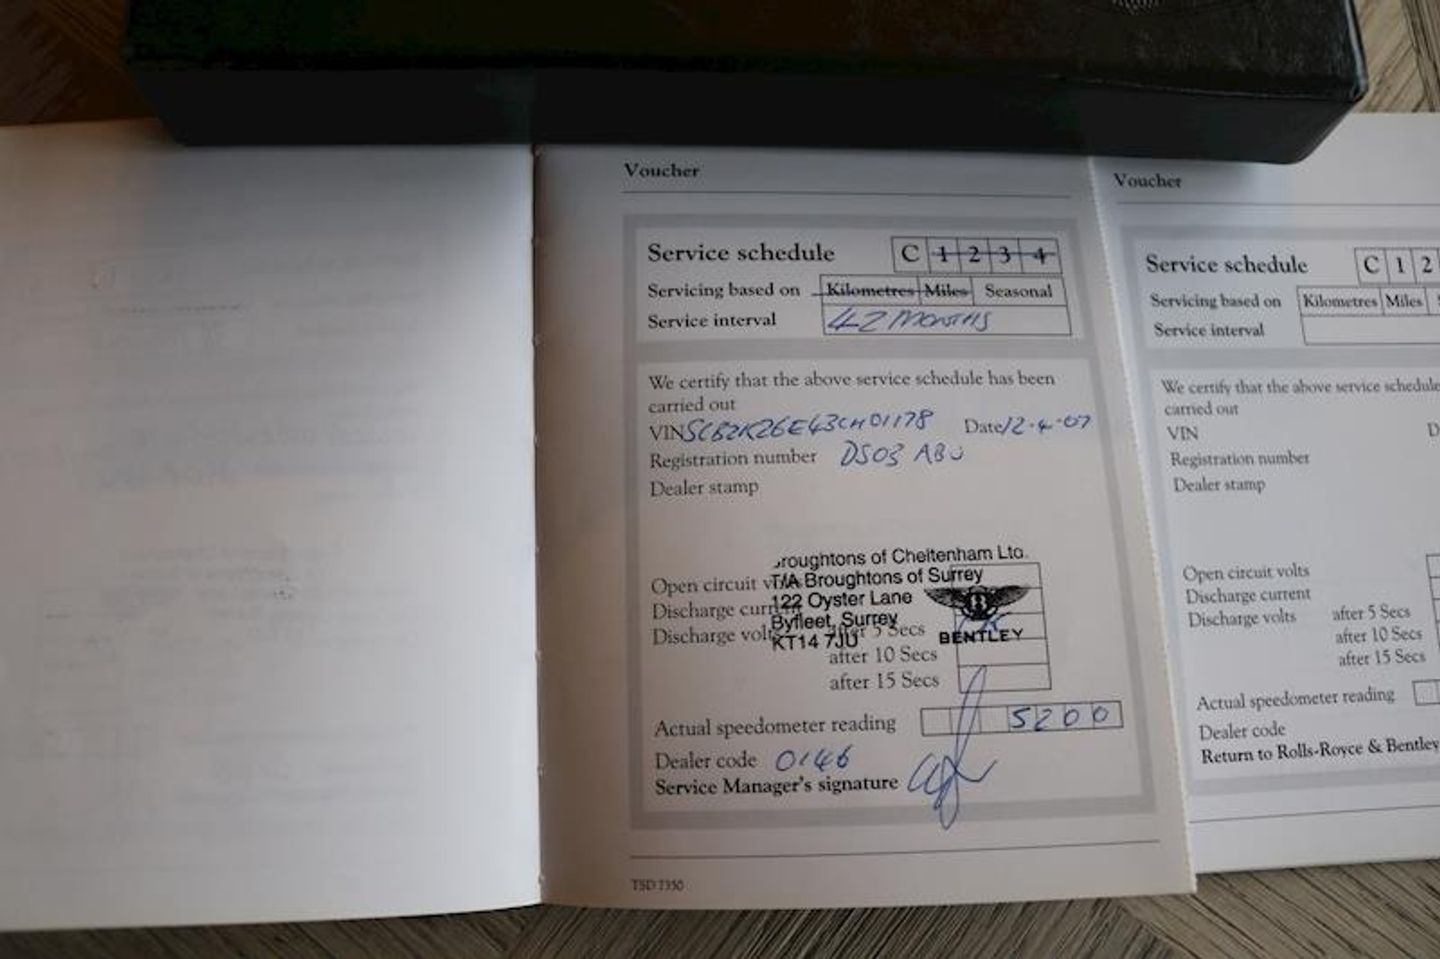 Voucher
Service schedule C 1 2 3 4
Servicing based on Kilometres Miles Seasonal
Service interval 42 MONTHS
We certify that the above service schedule has been
carried out
VIN SCBZK26E43CH01178 Date 12-4-07
Registration number DS03 ABU
Dealer stamp
Broughtons of Cheltenham Ltd.
T/A Broughtons of Surrey
122 Oyster Lane
Byfleet, Surrey
KT14 7JU
BENTLEY
Open circuit volts
Discharge current
Discharge volts after 5 Secs
after 10 Secs
after 15 Secs
Actual speedometer reading 5200
Dealer code 0146
Service Manager's signature
TSD 7350
Voucher
Service schedule C 1 2
Servicing based on Kilometres Miles
Service interval
We certify that the above service schedule
carried out
VIN D
Registration number
Dealer stamp
Open circuit volts
Discharge current
Discharge volts after 5 Secs
after 10 Secs
after 15 Secs
Actual speedometer reading
Dealer code
Return to Rolls-Royce & Bentley